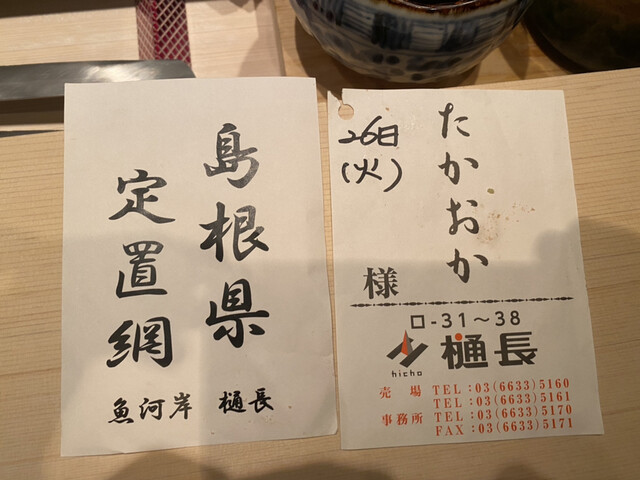 島根県
定置網
魚河岸 樋長
たかおか
様
26日
(火)
ロ-31～38
hicho
樋長
売場 TEL:03(6633)5160
TEL:03(6633)5161
事務所 TEL:03(6633)5170
FAX:03(6633)5171